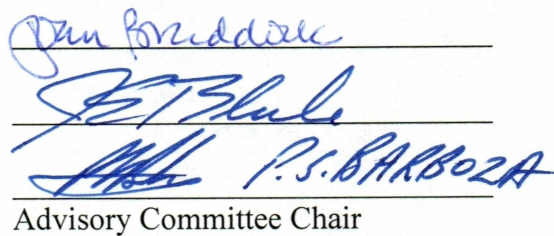 Joan Braddock
JETBlake
P.S. BARBOZA
Advisory Committee Chair